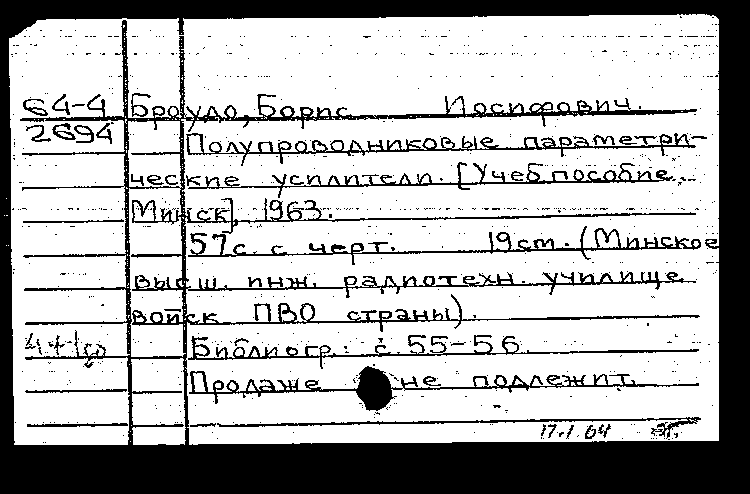 64-4 Броудо, Борис Иосифович.
2694 Полупроводниковые параметри-
ческие усилители. [Учеб. пособие.
Минск], 1963.
57 с. с черт. 19 см. (Минское
высш. инж. радиотехн. училище
войск ПВО страны).
Библиогр.: с. 55-56.
Продаже не подлежит.
17.1.64